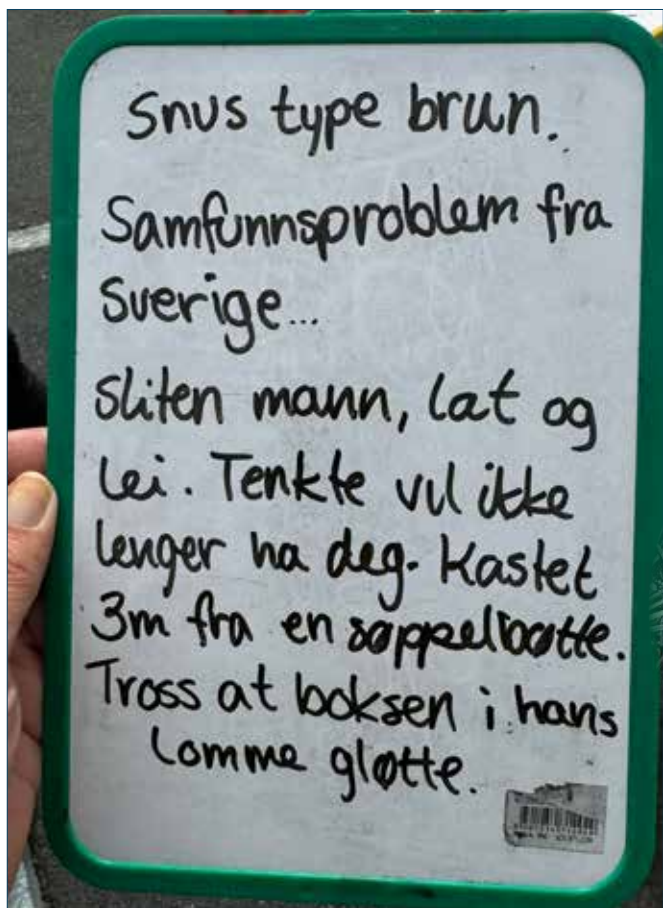 Snus type brun.
Samfunnsproblem fra
Sverige...
sliten mann, lat og
lei. Tenkte vil ikke
lenger ha deg. Kastet
3m fra en søppelbøtte.
Tross at boksen i hans
lomme gløtte.